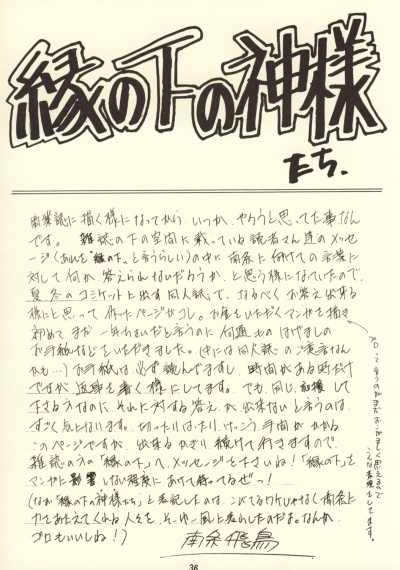 縁の下の神様
たち.
商業誌に描く様になってから、いつか、やろうと思ってた事なん
です。雑誌の下の空間に載っている読者さん達のメッセ
ージ(あれを"縁の下"と言うらしい)の中に南条に向けての言葉に
対して何か答えられないだろうか、と思う様になっていたので、
夏・冬のコミケットに出す同人誌で、なるべくお答え出来る
様にと思って作ったページがコレ。お金をいただくマンガを描き
初めてまだ一年たらずだと言うのに何通ものはげましの
お手紙などをいただきました。(中には同人誌のご感想なん
かも…)お手紙は必ず読んでますし、時間がある時だけ
ですが返事を書く様にしてます。でも、同じ応援して
下さる方なのに、それに対する答えが出来ないと言うのは
すごく気になります。切ったりはったり、けっこう手間がかかる
このページですが、出来るかぎり続けて行きますので
雑誌の方の「縁の下」へ、メッセージを下さいね!「縁の下」を
マンガに影響しない程度にあてて待ってるぜっ!
(なお「縁の下の神様たち」と表記したのは、こってるワケじゃなく南条に
力をあたえてくれる人々を、そーゆー風に表わしたのだよ。なんか
プロもいいしね!)
南条飛鳥
プロってゆうのがまだおこがましく思えるので
こんな表現をしてます。
36